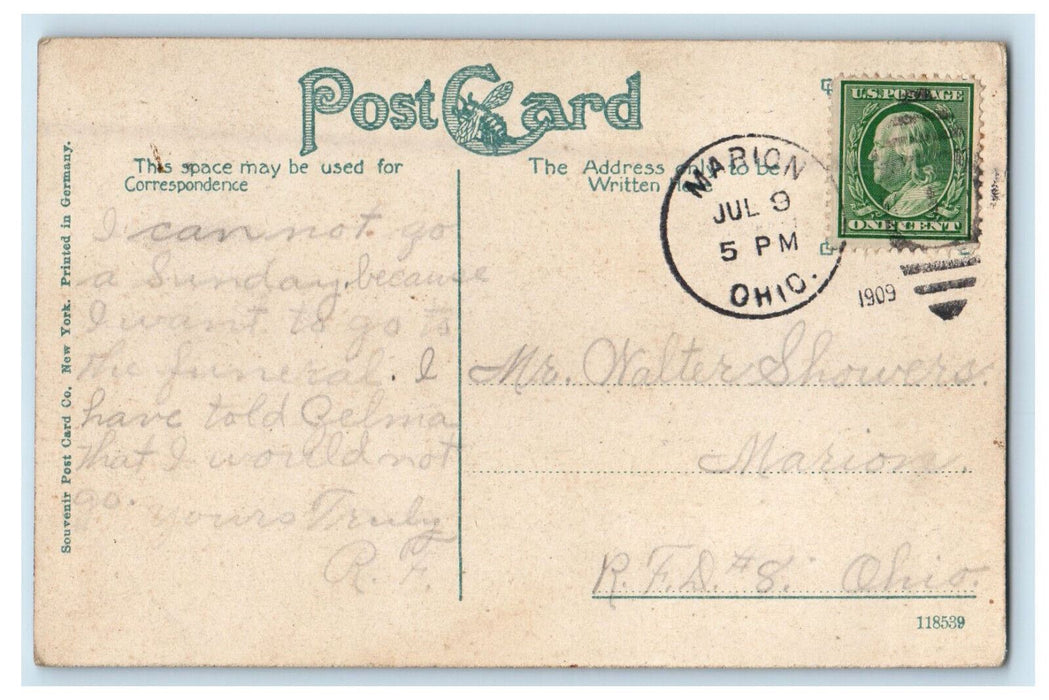 Post Card
This space may be used for
Correspondence
The Address only to be
Written
MARION
JUL 9
5 PM
OHIO.
1909
U.S. POSTAGE
ONE CENT
I can not go
a Sunday because
I want to go to
the funeral. I
have told Zelma
that I would not
go.
yours Truly
R. F.
Mr. Walter Showers.
Marion.
R.F.D. #8. Ohio.
Souvenir Post Card Co. New York. Printed in Germany.
118539